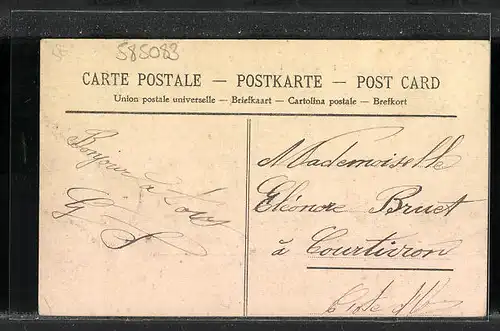 585083
CARTE POSTALE — POSTKARTE — POST CARD
Union postale universelle — Briefkaart — Cartolina postale — Brefkort
Bonjour
à tous
G. S.
Mademoiselle
Eléonore Bruet
à Courtivron
Cote